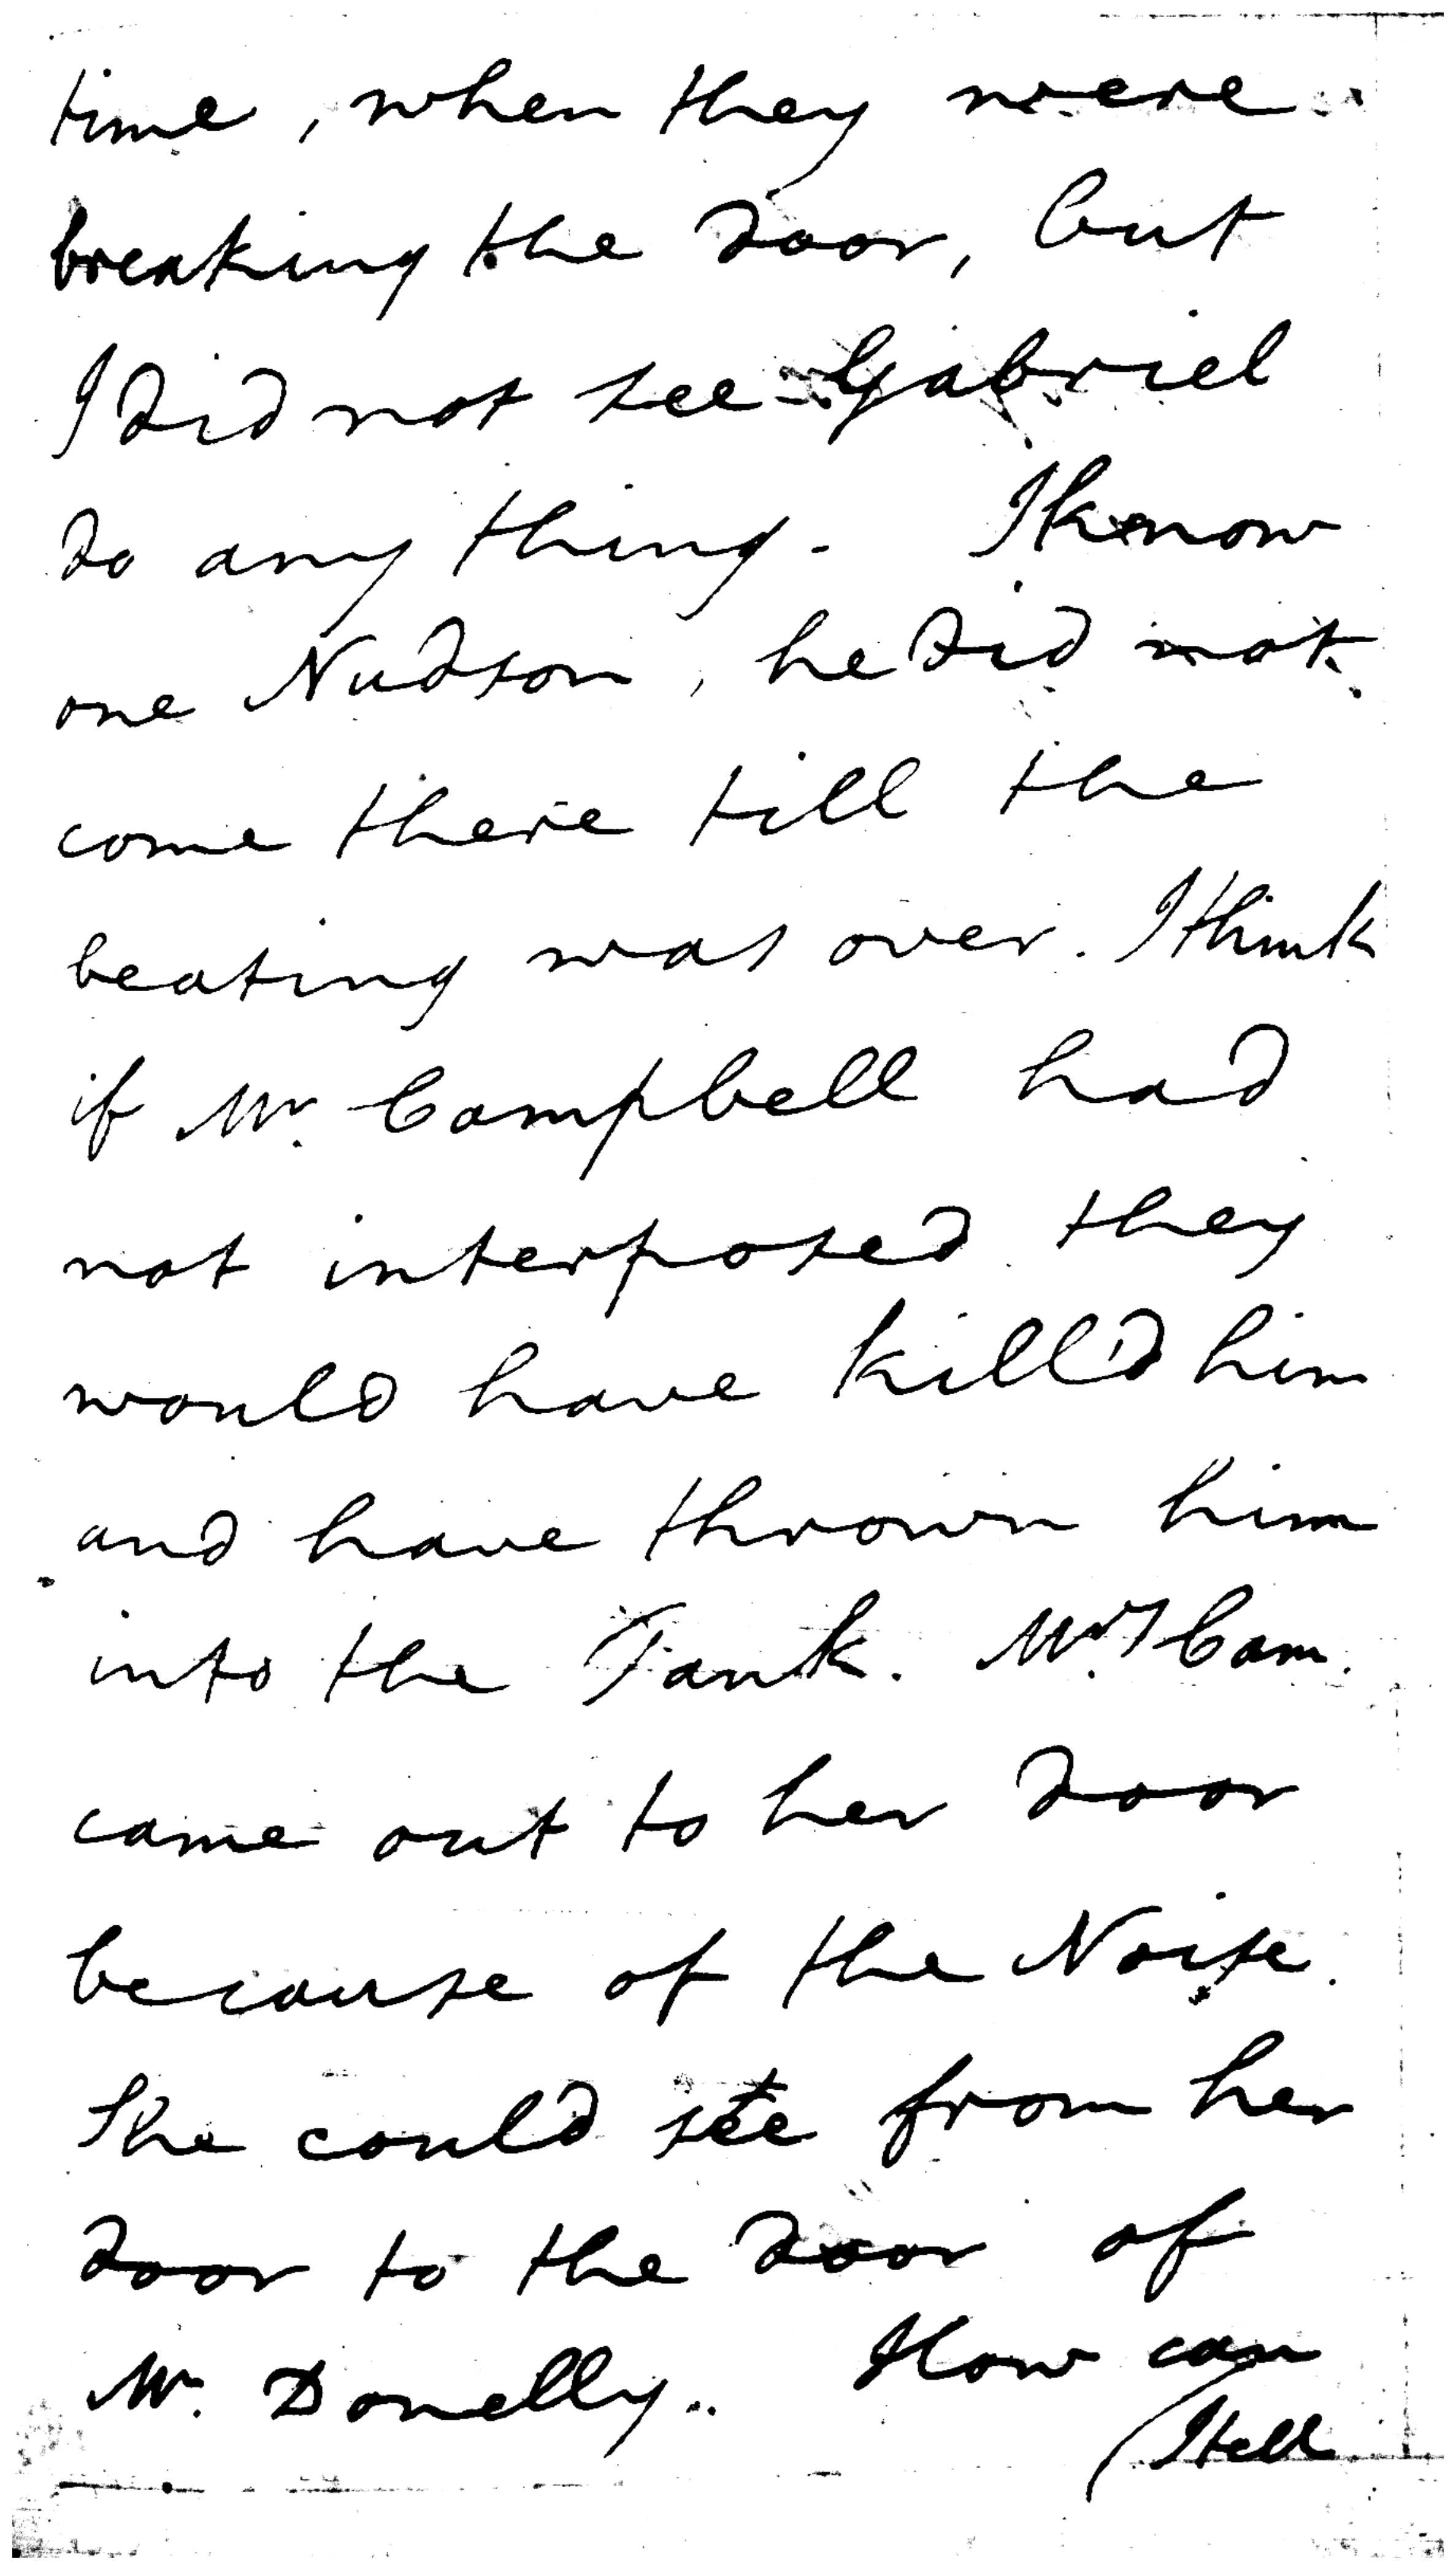 time, when they were
breaking the door, but
I did not see Gabriel
do any thing. I know
one Nudson, he did not
come there till the
beating was over. I think
if Mr. Campbell had
not interposed they
would have kill'd him
and have thrown him
into the Tank. Mrs. Cam.
came out to her door
because of the Noise.
She could see from her
door to the door of
Mr. Donelly. How can
I tell